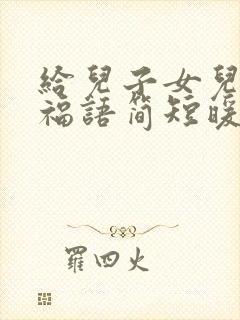 給兒子女兒
福語簡短暖
羅四火